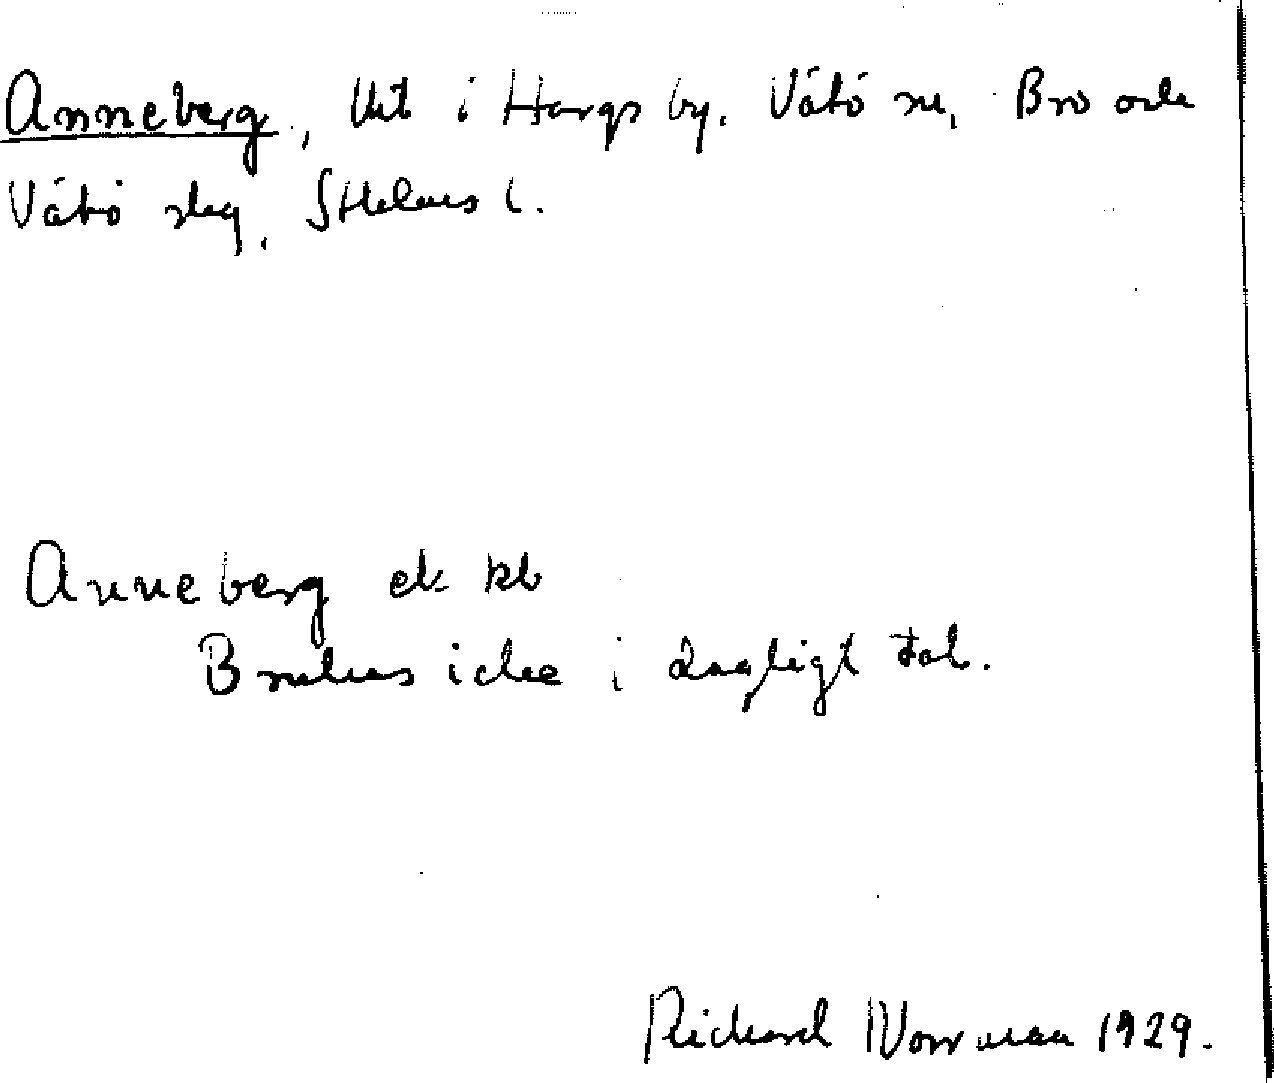 Anneberg, Ut i Hargs by. Vätö sn, Bro och
Vätö skg, Sthlms l.
Anneberg ek kb
Brukas icke i dagligt tal.
Richard Norrman 1929.